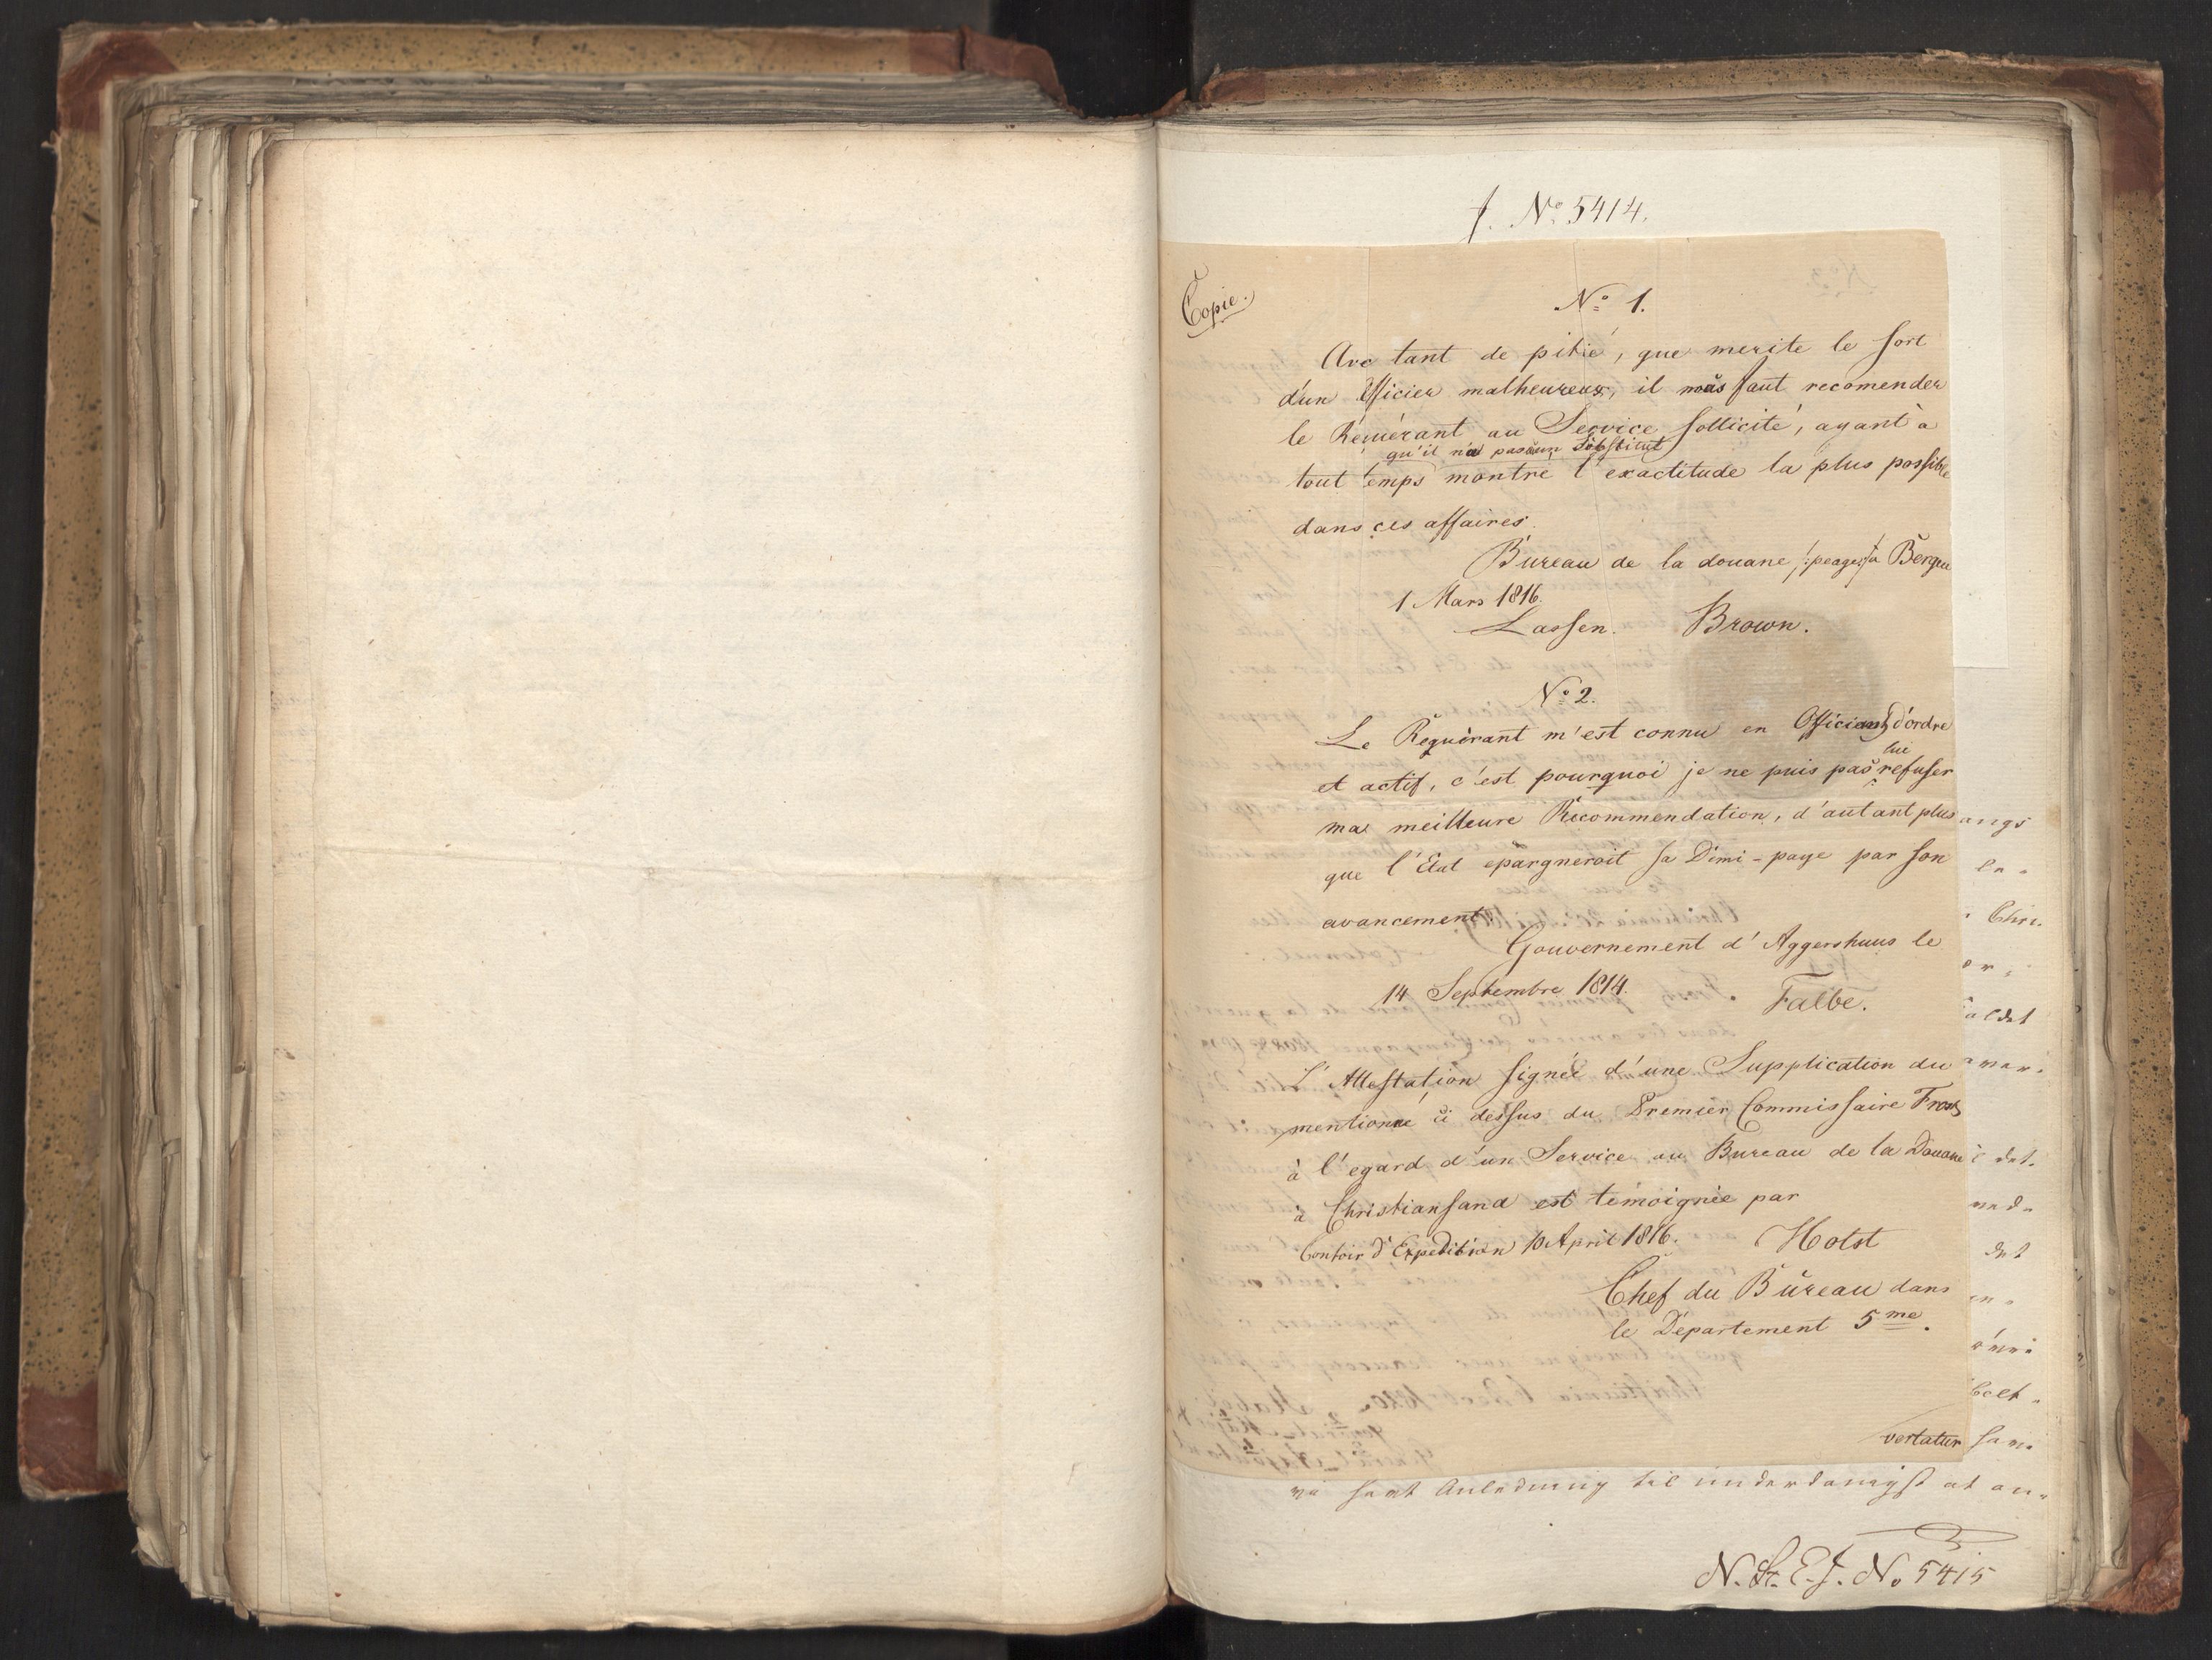 J. No 5414.
Copie.
No 1.
Avc tant de pitié, que merite le sort
d'un Officier malheureux, il nous faut recomender
le Réquérant au Service sollicité, ayant à
qu'il n'a pas un Substitut
tout temps montré l'exactitude la plus possible
dans ces affaires.
Bureau de la douane /:peages:/ à Bergen
1 Mars 1816.
Lassen. Brown.
No 2.
Le Requèrant m'est connu en Officiant d'ordre
et actif, c'est pourquoi je ne puis pas lui refuser
ma meilleure Recommendation, d'autant plus
que l'Etat epargneroit sa Demi-paye par son
avancement.
Gouvernement d'Aggershuus le
14 Septembre 1814.
Falbe.
L'Attestation signée d'une Supplication du
mentionné ci dessus du Premier Commissaire Frost
à l'egard d'un Service au Bureau de la Douane
à Christiansand est temoignée par
Contoir d'Expedition 10 April 1816. Holst
Chef du Bureau dans
le Departement 5me.
vertatur
angs
en-
Chri-
aldet
det.
det
sam-
sent Anledning til underdanigst at an-
N. St. E. J. No 5415